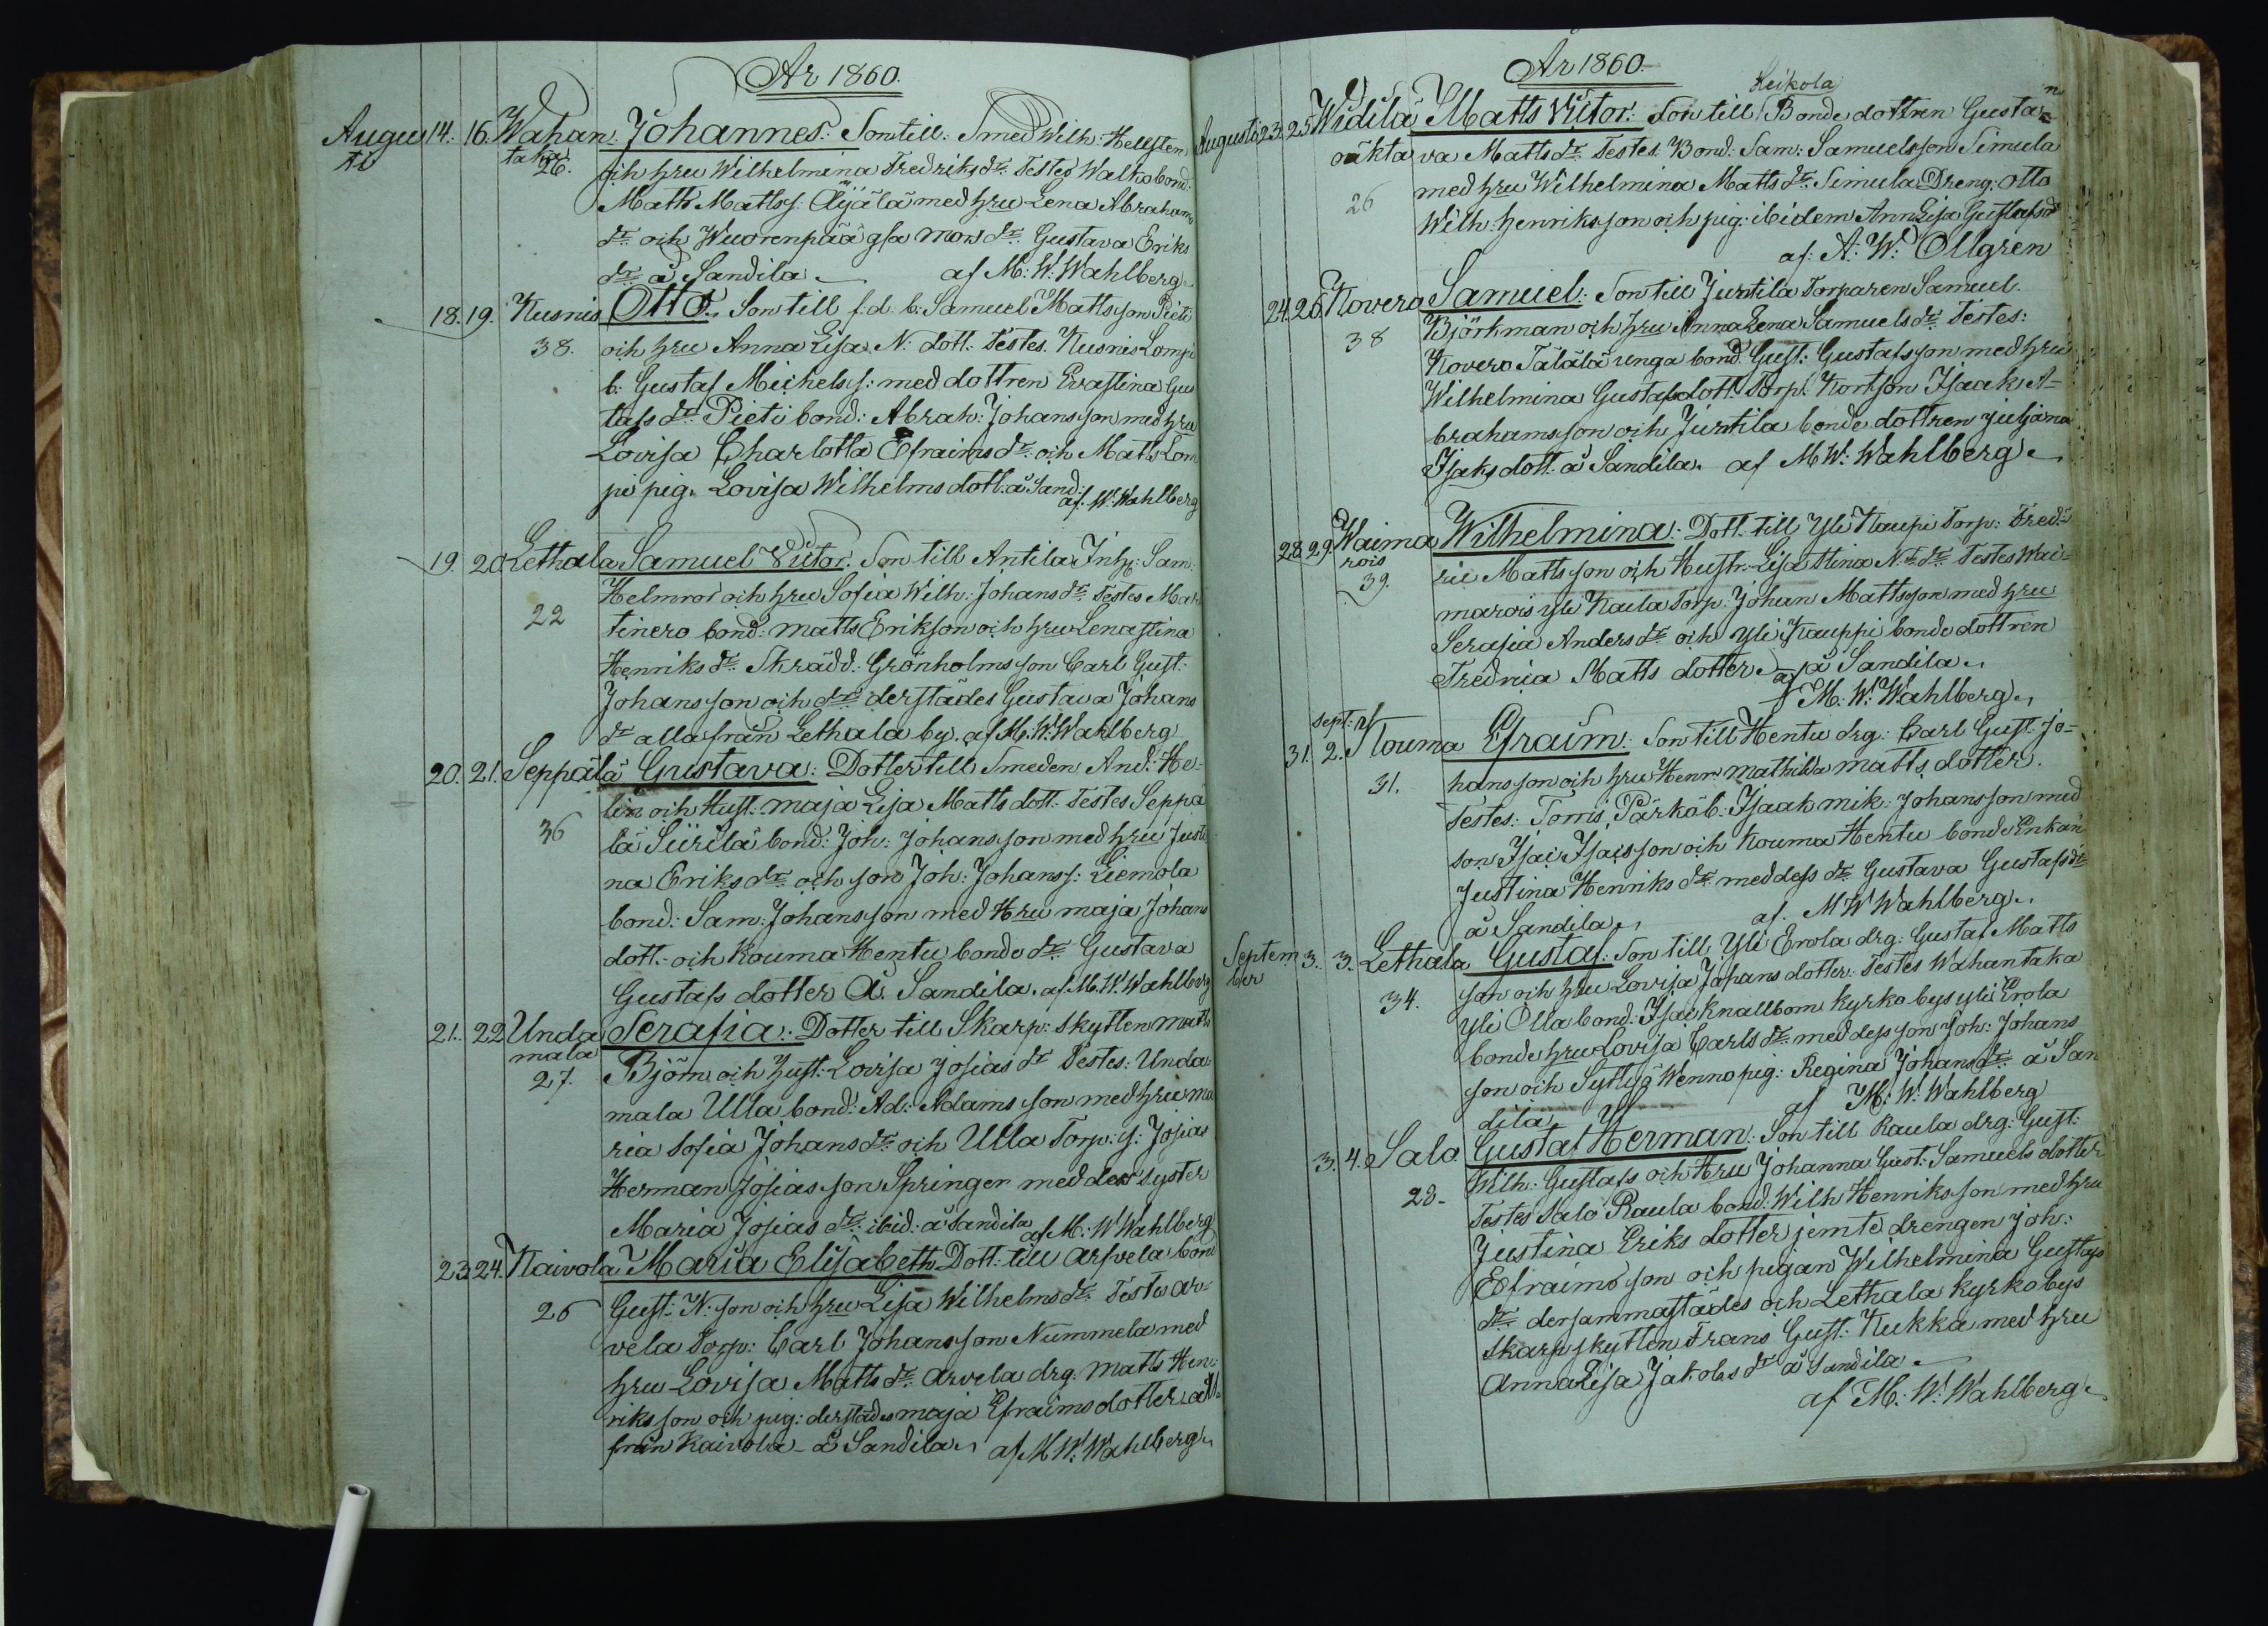 År 1860.
Augu 14. 16. Wahan Johannes. Son till: Smed Wilh: Hellsten
sti taka och hru Wilhelmina Fredriks dr. Testes Walko bond:
26. Matts Matts s: Äijälä med hru Lena Abrahams
dr. och Wuorenpää gla mors dr. Gustava Eriks
dr. å Sandila af M: W: Wahlberg
18. 19. Kusnis Otto. Son till f.d. b: Samuel Mattsson Pieti
38. och hru Anna Lisa N: dott: Testes. Kusnis Lompi
b: Gustaf Michels s: med dottren Evastina Gus
tafs dr. Pieti bond: Abrah: Johansson med hru
Lovisa Charlotta Efraims dr. och Matts Lom
pi pig. Lovisa Wilhelms dott. å Sand:
af. W: Wahlberg
19. 20. Lethala Samuel Victor. Son till Antila Inh: Sam:
Helmros och hru Sofia Wilh: Johans dr. Testes Mar
22 tinero bond: Matts Erikson och hru Lenastina
Henriks dr. Skrädd: Grönholms son Carl Gust:
Johansson och dr. derstädes Gustava Johans
dr. alla från Lethala by. af M: W: Wahlberg
20. 21. Seppälä Gustava: Dotter till Smeden And: He-
lin och Hust: Maja Lisa Matts dott: Testes Seppä
36 lä Siirilä bond: Joh: Johansson med hru Justi
na Eriks dr. och son Joh: Johans s: Liemola
bond: Sam: Johansson med Hru Maja Johans
dott: och Kouma Hentu bonde dr. Gustava
Gustafs dotter å Sandila. af M. W. Wahlberg
21. 22 Unda Serafia. Dotter till Skarp: skytten Matts
mala Björn och Hust: Lovisa Josias dr Testes: Unda
27. mala Ulla bond: Ad: Adamsson med hru Ma
ria Sofia Johans dr. och Ulla Torp: s: Josias
Herman Josiasson Springer med dess syster
Maria Josias dr. ibid: å Sandila af M: W Wahlberg
23 24. Kaivola Maria Elisabeth Dott: till Arfvela bond
26 Gust: N: son och hru Lisa Wilhelms dr. Testes Ar-
vela Torp: Carl Johansson Nummela med
hru Lovisa Matts dr. Arvela drg: Matts Hen:
riksson och pig: derstädes Maja Efraims dotter all
från Kaivola å Sandila af M W: Wahlberg
År 1860
Augusti 23. 25 Widilä Matts Victor: Son till Heikola Bonde dottren Gusta
oäkta va Matts dr. Testes. Bond: Sam: Samuelsson Simula
26 med hru Wilhelmina Matts dr. Simula Dreng: Otto
Wilh: Henriksson och pig: ibidem Anna Lisa Gustafs dr
af: A: W: Ollgren
24. 26 Kovero Samuel: Son till Juntila Torparen Samuel
38 Björkman och hru Anna Lena Samuels dr. Testes:
Kovero Tälälä unga bond: Gust: Gustafsson med hru
Wilhelmina Gustafs dott. Torp: Kortson Isaak A-
brahamsson och Juntila bonde dottren Juljana
Isaks dott: å Sandila. af M W: Wahlberg
28. 29. Waima Wilhelmina: Dott: till Yli Kaupi Torp: Fred-
rois ric Mattsson och Hustr: Lisa Stina N: dr. Testes Wai-
39. marois Yli Kaula Torp: Johan Mattsson med hru
Serafia Anders dr. och Yli Kauppi bonde dottren
Fredrica Matts dotter å Sandila
af M: W: Wahlberg
Sept:
31. 2. Kouma Efraim: Son till Hentu drg: Carl Gust: Jo-
31. hansson och hru Henr: Mathilda Matts dotter.
Testes: Torris Pärkö b: Isaak Mik: Johansson med
son Isai Isaisson och Kouma Hentu bonde Enkan
Justina Henriks dr. med dess dr. Gustava Gustafs dr
å Sandila af. M W Wahlberg
Septem 3. 3. Lethala Gustaf: Son till Yli Erola drg: Gustaf Matts
ber son och hru Lovisa Johans dotter: Testes Wahantaka
34. Yli Olla bond: Isai Knallbom kyrkobys Yli Erola
bonde hru Lovisa Carls dr. med dess son Joh: Johans
son och Syttyä Wenno pig: Regina Johans dr. å San
dila af M: W: Wahlberg
3. 4. Salo Gustaf Herman: Son till Raula drg: Gust:
28- Wilh: Gustafs och Hru Johanna Gust: Samuels dotter
Testes Salo Raula bond: Wilh Henriksson med hru
Justina Eriks dotter jemte drengen Joh:
Efraimsson och pigan Wilhelmina Gustafs
dr. dersammastädes och Lethala kyrkobys
skarpskytten Frans Gust: Kukka med hru
Anna Lisa Jakobs dr å Sandila
af M: W: Wahlberg